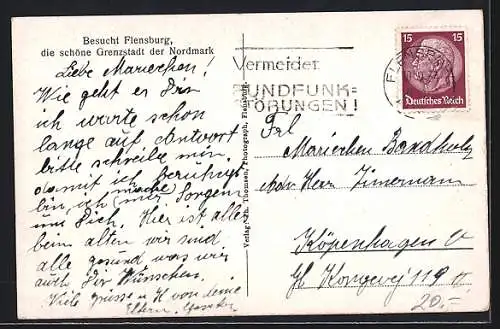 Besucht Flensburg,
die schöne Grenzstadt der Nordmark
Liebe Mariechen!
Wie geht es Dir
ich warte schon
lange auf Antwort
bitte schreibe mir
damit ich beruhigt
bin, ich mache mir Sorgen
um Dich. Hier ist alles
beim alten wir sind
alle gesund was wir
auch Dir Wünschen.
Viele grüsse u K von deine
Eltern,
Verlag: Th. Thomsen, Photograph, Flensburg.
Vermeidet
RUNDFUNK=
STÖRUNGEN!
FLENSBURG
15 15
Deutsches Reich
Frl
Mariechen
Adr. Herr Zimermann
Köpenhagen
Gl Kongevej 119
20.-